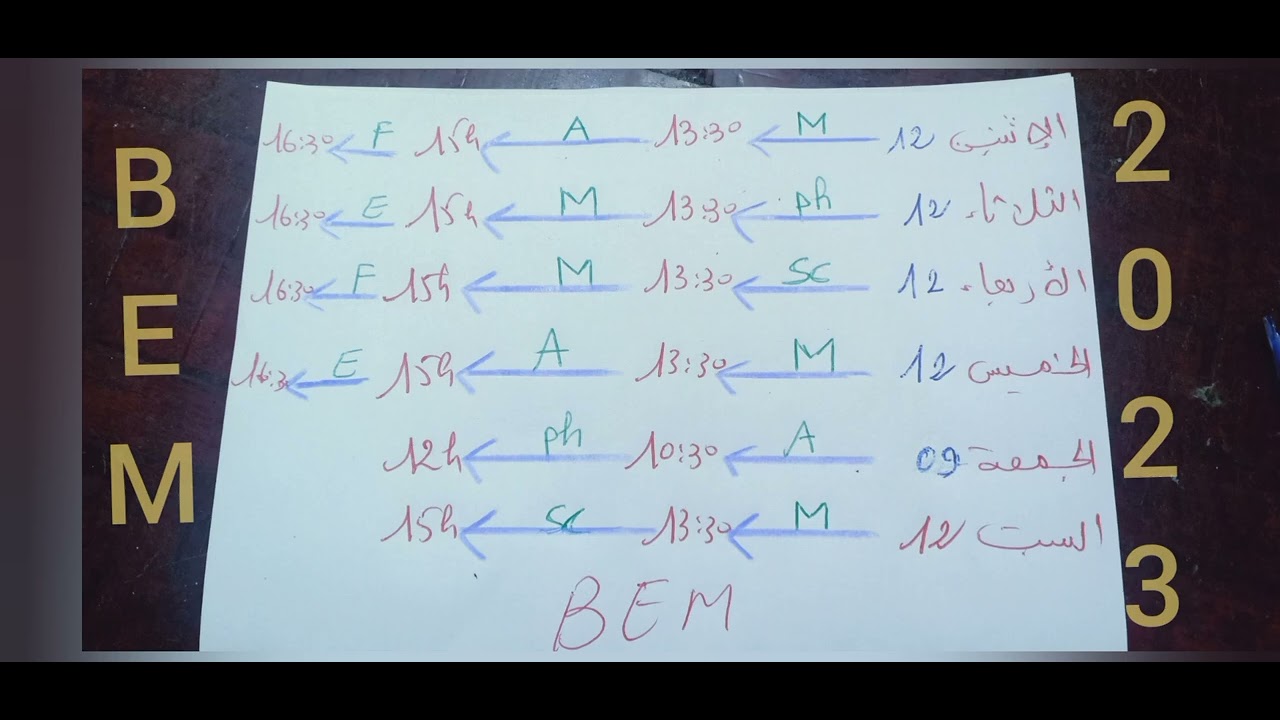 BEM
2023
الإثنين 12 ← M 13:30 ← A 15h ← F 16:30
الثلاثاء 12 ← ph 13:30 ← M 15h ← E 16:30
الأربعاء 12 ← SC 13:30 ← M 15h ← F 16:30
الخميس 12 ← M 13:30 ← A 15h ← E 16:3
الجمعة 09 ← A 10:30 ← ph 12h
السبت 12 ← M 13:30 ← SC 15h
BEM